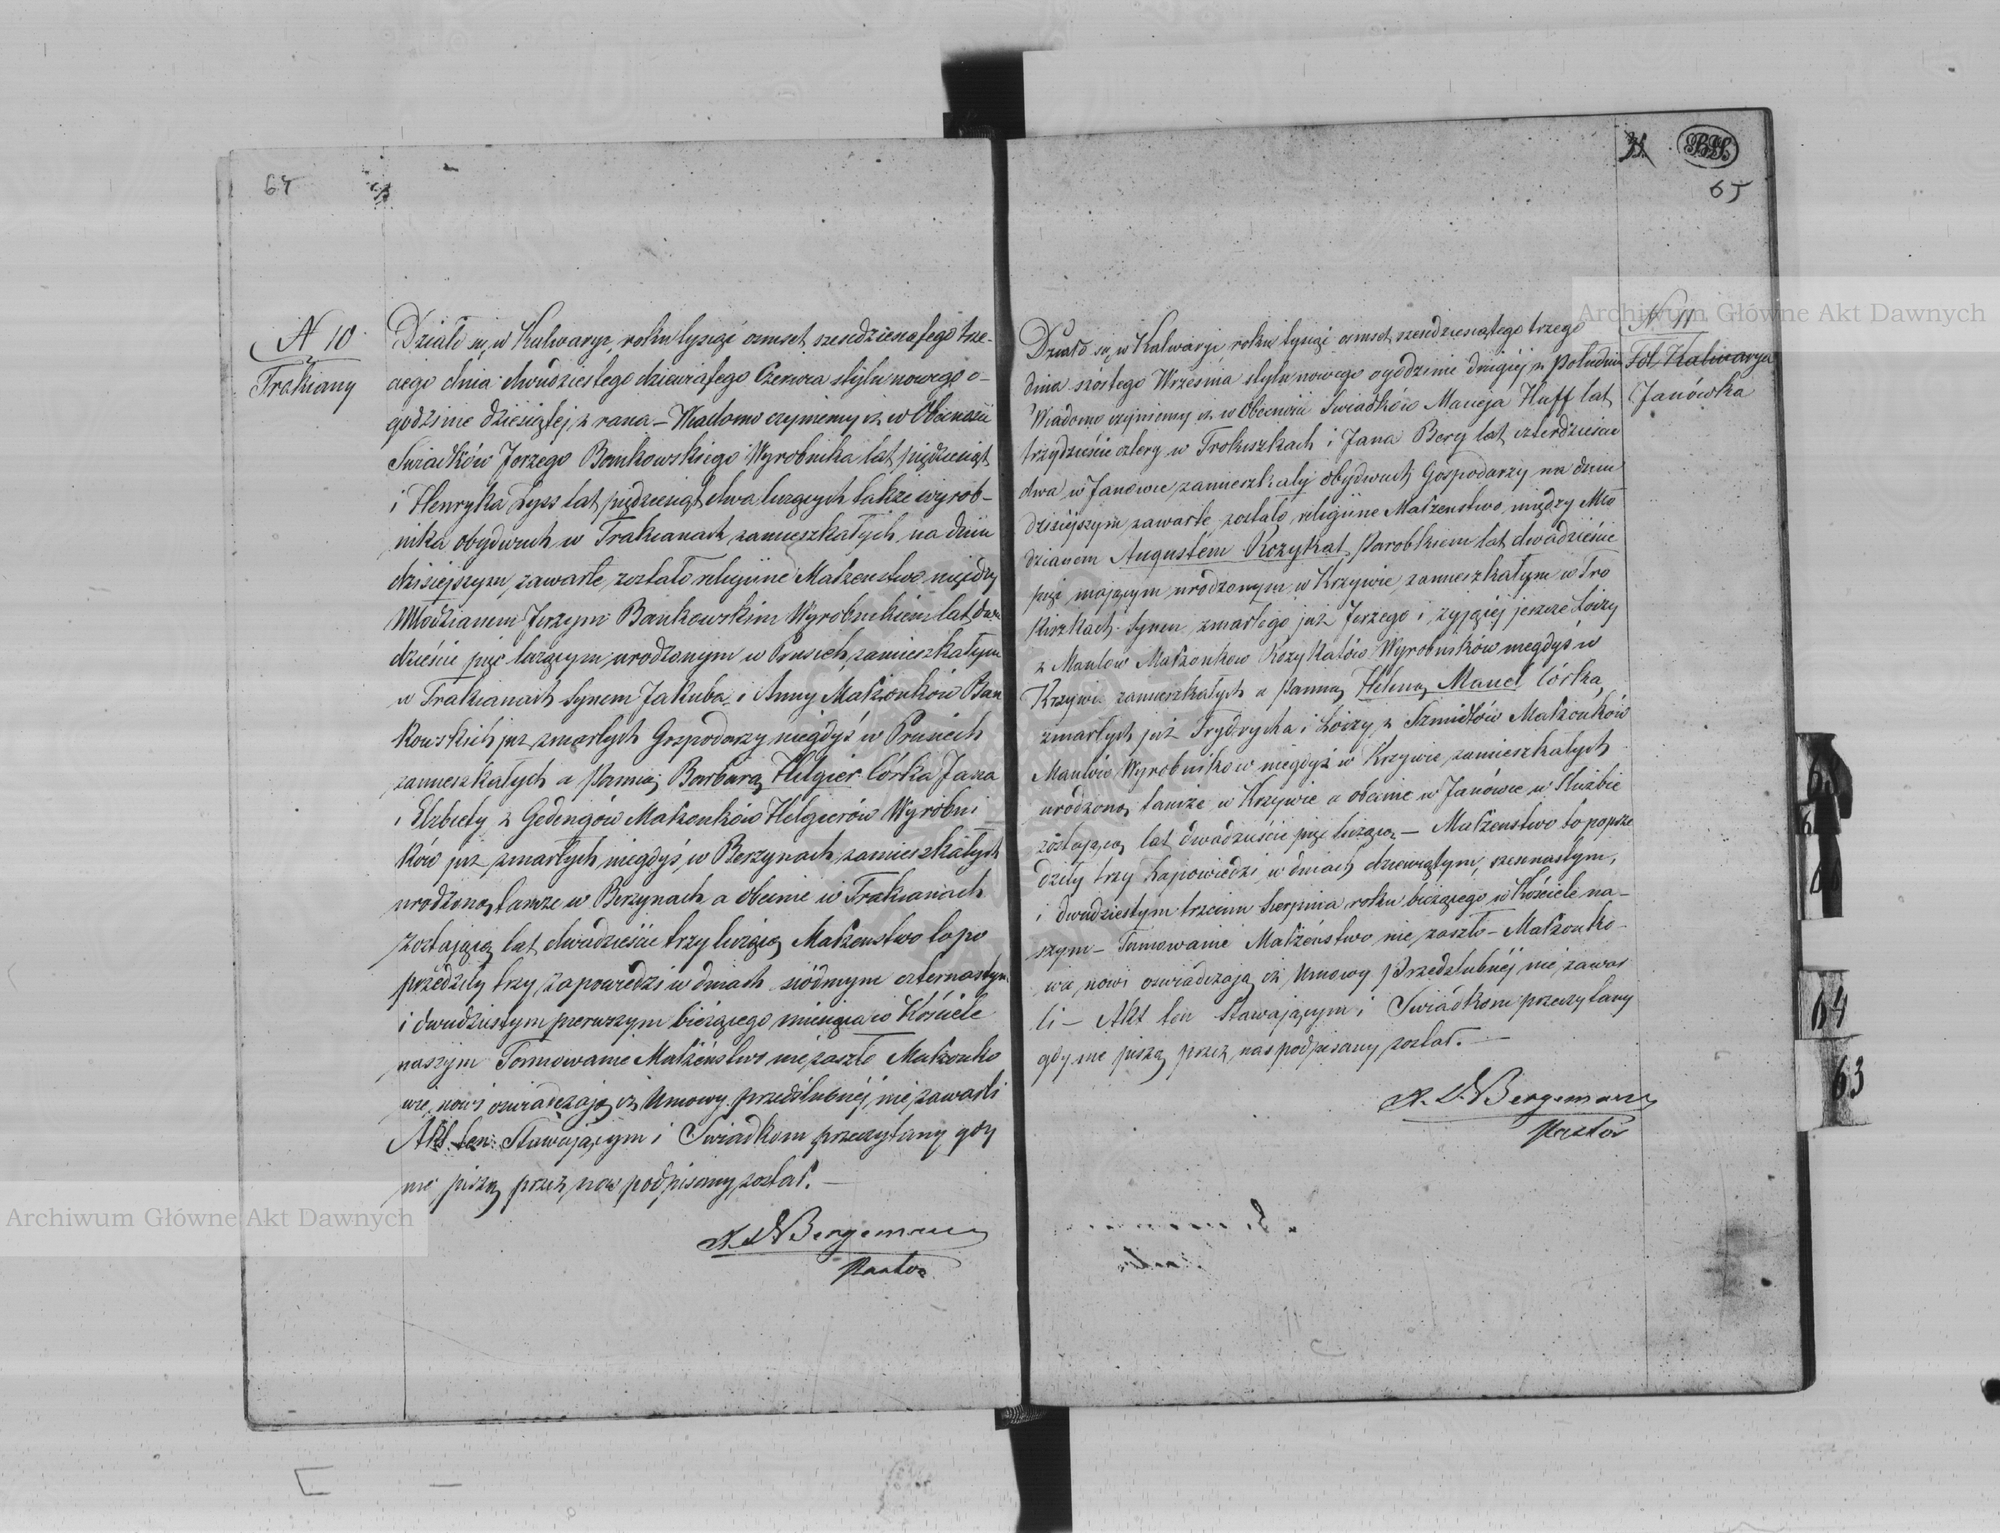 64
N 10
Trakiany
Działo się w Kalwaryi, roku tysiąc ośmset sześćdziesiątego trze-
ciego dnia dwudziestego dziewiątego Czerwca stylu nowego o-
godzinie dziesiątej z rana – Wiadomo czyniemy iż w Obecności
Swiadków Jerzego Bankowskiego Wyrobnika lat pięćdziesiąt
i Henryka Lyss lat pięćdziesiąt dwa liczących także wyrob-
nika obydwuch w Trakianach zamieszkałych, na dniu
dzisiejszym zawarte zostało religijne Małżeństwo między
Młodzianem Jerzym Bankowskim Wyrobnikiem lat dwa
dzieście pięć liczącym urodzonym w Prusiech zamieszkałym
w Trakianach Synem Jakuba i Anny Małżonków Ban
kowskich już zmarłych Gospodarzy niegdyś w Prusiech
zamieszkałych a Panną Barbarą Helgier Córka Jana
i Elżbiety z Gedingów Małżonków Helgierów Wyrobni
ków już zmarłych niegdyś w Berzynach zamieszkałych
urodzoną tamże w Berzynach a obecnie w Trakianach
zostającą lat dwadzieście trzy liczącą Małżenstwo to po
przedziły trzy zapowiedzi w dniach siódmym czternastym
i dwudziestym pierwszym bieżącego miesiąca w Kościele
naszym Tamowanie Małżeństwo nie zaszło Małżonko
wie nowi oświadczają iż Umowy przedślubnéj nie zawarli
Akt ten Stawającym i Swiadkom przeczytany gdy
nie piszą przez nas podpisany został. –
Bergemann
Pastor
65
N 11
Fol. Kalwarya
Janówka
Działo się w Kalwaryi roku tysiąc ośmset sześćdziesiątego trzego
dnia szóstego Września stylu nowego o godzinie drugiéj z Południa
Wiadomo czyniemy iż w Obecności Swiadków Macieja Huff lat
trzydzieście cztery w Trokiszkach i Jana Berg lat czterdzieście
dwa w Janowie zamieszkały obydwuch Gospodarzy na dniu
dzisiejszym zawarte zostało religijne Małżenstwo między Mło
dzianem Augustem Kozykat Parobkiem lat dwadzieście
pięć mającym urodzonym w Krzywie, zamieszkałym w Tro
kiszkach Synem zmarłego już Jerzego i żyjącéj jeszcze Loizy
z Manlow Małżonkow Kozykatów Wyrobników niegdyś w
Krzywie zamieszkałych a Panną Heleną Mauel Córką
zmarłych już Frydrycha i Loizy z Szmidtów Małżonków
Manlów Wyrobników niegdyś w Krzywie zamieszkałych
urodzoną tamże w Krzywie a obecnie w Janówce w Służbie
zostającą lat dwadzieście pięć liczącą – Małżenstwo to poprze
dziły trzy Zapowiedzi w dniach dziewiątym, szesnastym,
i dwudziestym trzecim Sierpnia roku bieżącego w Kościele na-
szym – Tamowanie Małżeństwo nie zaszło – Małżonko-
wie nowi oświadczają iż Umowy Przedślubnéj nie zawar
li – Akt ten Stawającym i Swiadkom przeczytany
gdy nie piszą przez nas podpisany został. –
Bergemann
Pastor
64
63
Archiwum Główne Akt Dawnych
Archiwum Główne Akt Dawnych